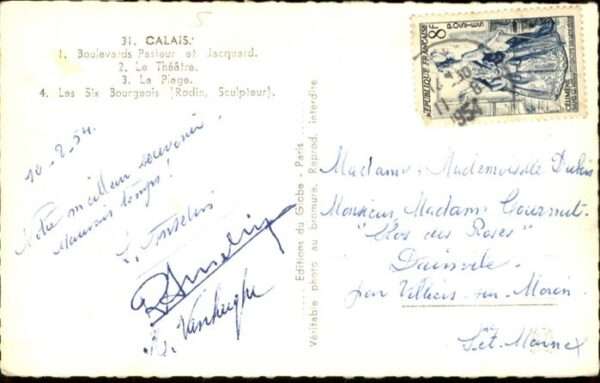 31. CALAIS.
1. Boulevards Pasteur et Jacquard.
2. Le Théâtre.
3. La Plage.
4. Les Six Bourgeois (Rodin, Sculpteur).
10-8-54.
Notre meilleur souvenir
Mauvais temps!
Vanheeghe
Editions du Globe - Paris
Véritable photo au bromure. Reprod. interdite
8F
REPUBLIQUE FRANÇAISE
1954
Madame, Mademoiselle
Monsieur, Madame Gournut
"Clos des Roses"
par Villiers-sur-Morin
Set Marne